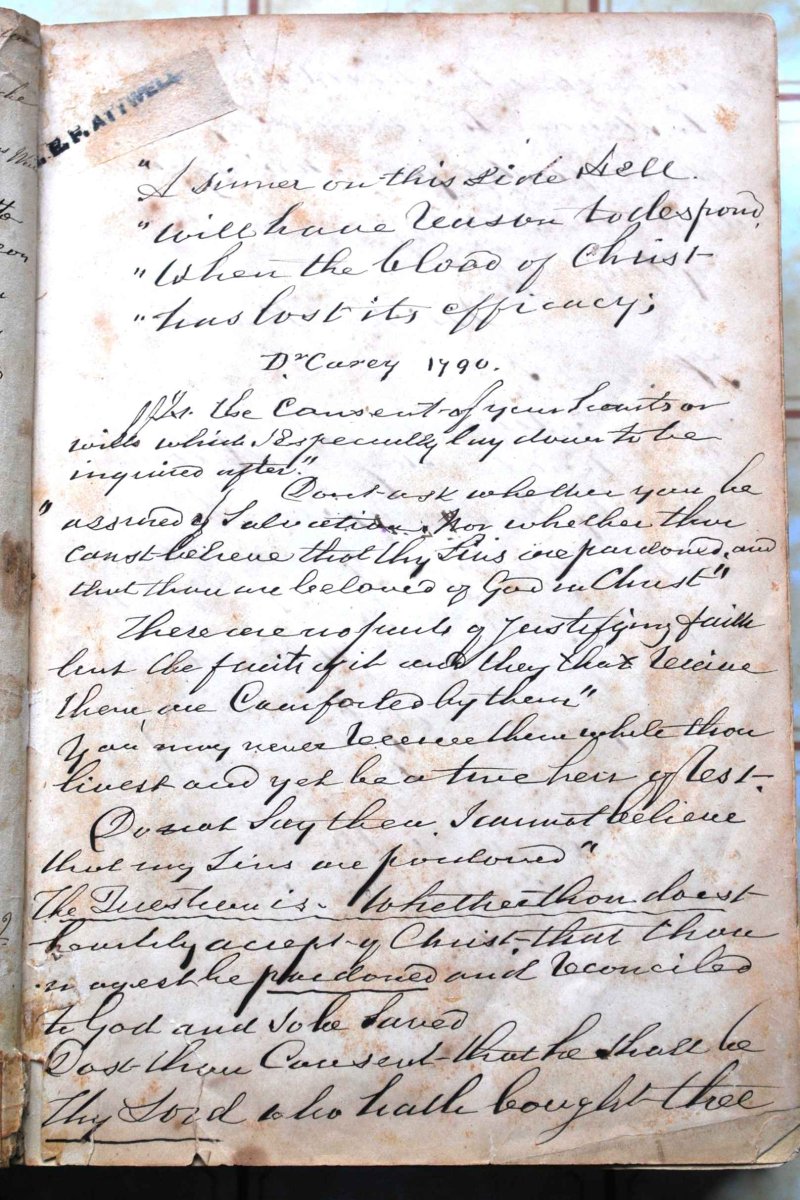 E. F. ATTWELL
"A sinner on this side Hell.
"will have reason to despond,
"When the blood of Christ
"has lost its efficacy;
Dr Carey 1790.
"Tis the Consent of your hearts or
wills which I Especially lay down to be
inquired after."
Dont ask whether you be
"assured of Salvation. Nor whether thou
canst believe that thy Sins are pardoned, and
that thou are beloved of God in Christ"
These are no parts of Justifying faith
but the fruits of it and they that receive
them are Comforted by them"
You may never receive them while thou
livest and yet be a true heir of rest.
Do not Say then. I cannot believe
that my Sins are pardoned"
The Question is. Whether thou doest
heartily accept of Christ that thou
mayest be pardoned and reconciled
to God and so be Saved
Dost thou Consent that he shall be
thy Lord who hath bought thee